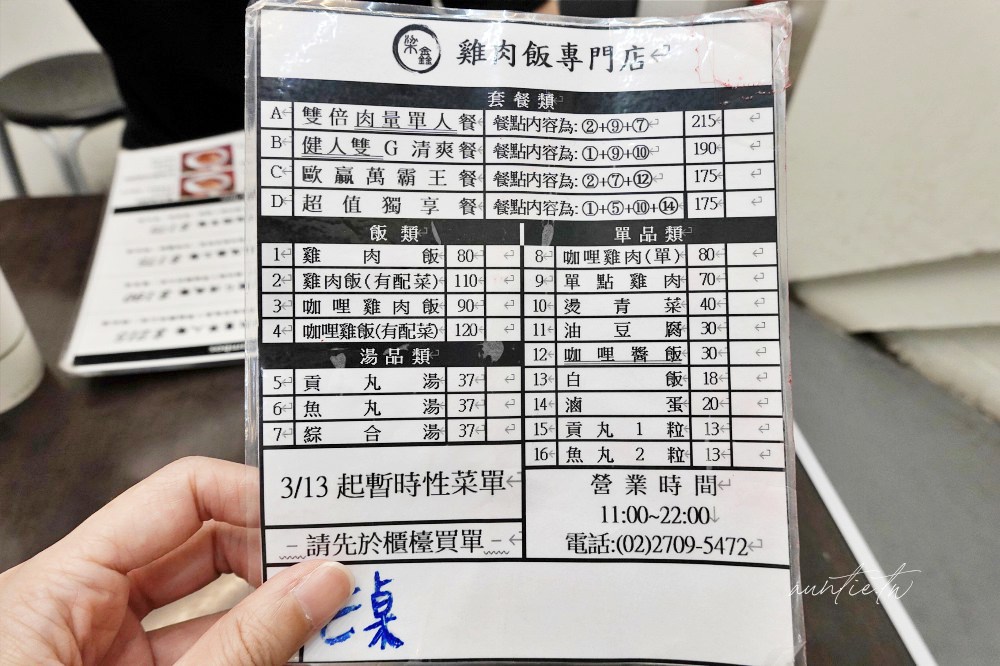 柒鑫 雞肉飯專門店
套餐類
A 雙倍肉量單人餐 餐點內容為:②+⑨+⑦ 215
B 健人雙 G 清爽餐 餐點內容為:①+⑨+⑩ 190
C 歐嬴萬霸王餐 餐點內容為:②+⑦+⑫ 175
D 超值獨享餐 餐點內容為:①+⑤+⑩+⑭ 175
飯類
1 雞肉飯 80
2 雞肉飯(有配菜) 110
3 咖哩雞肉飯 90
4 咖哩雞飯(有配菜) 120
湯品類
5 貢丸湯 37
6 魚丸湯 37
7 綜合湯 37
3/13 起暫時性菜單
–請先於櫃檯買單–
單品類
8 咖哩雞肉(單) 80
9 單點雞肉 70
10 燙青菜 40
11 油豆腐 30
12 咖哩醬飯 30
13 白飯 18
14 滷蛋 20
15 貢丸1粒 13
16 魚丸2粒 13
營業時間
11:00~22:00
電話:(02)2709-5472
桌
auntietw